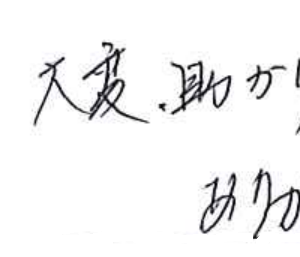 大変助かり
ありが